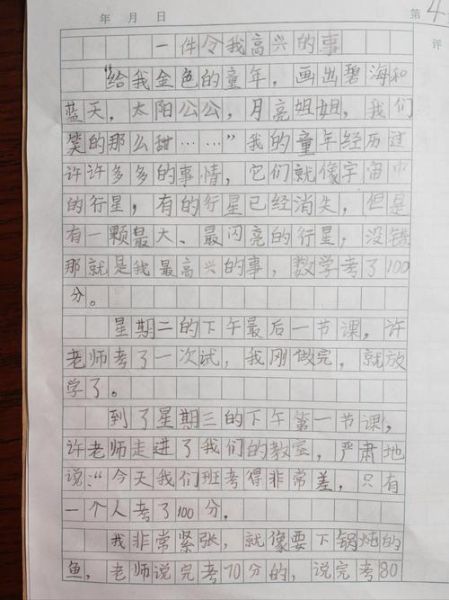 年 月 日 第 4
评
一件令我高兴的事
“给我金色的童年，画出碧海和
蓝天，太阳公公，月亮姐姐，我们
笑的那么甜……”我的童年经历过
许许多多的事情，它们就像宇宙中
的行星，有的行星已经消失，但是
有一颗最大、最闪亮的行星，没错
那就是我最高兴的事，数学考了100
分。
星期二的下午最后一节课，许
老师考了一次试，我刚做完，就放
学了。
到了星期三的下午第一节课，
许老师走进了我们的教室，严肃地
说：“今天我们班考得非常差，只有
一个人考了100分。
我非常紧张，就像要下锅炖的
鱼，老师说完考70分的，说完考80